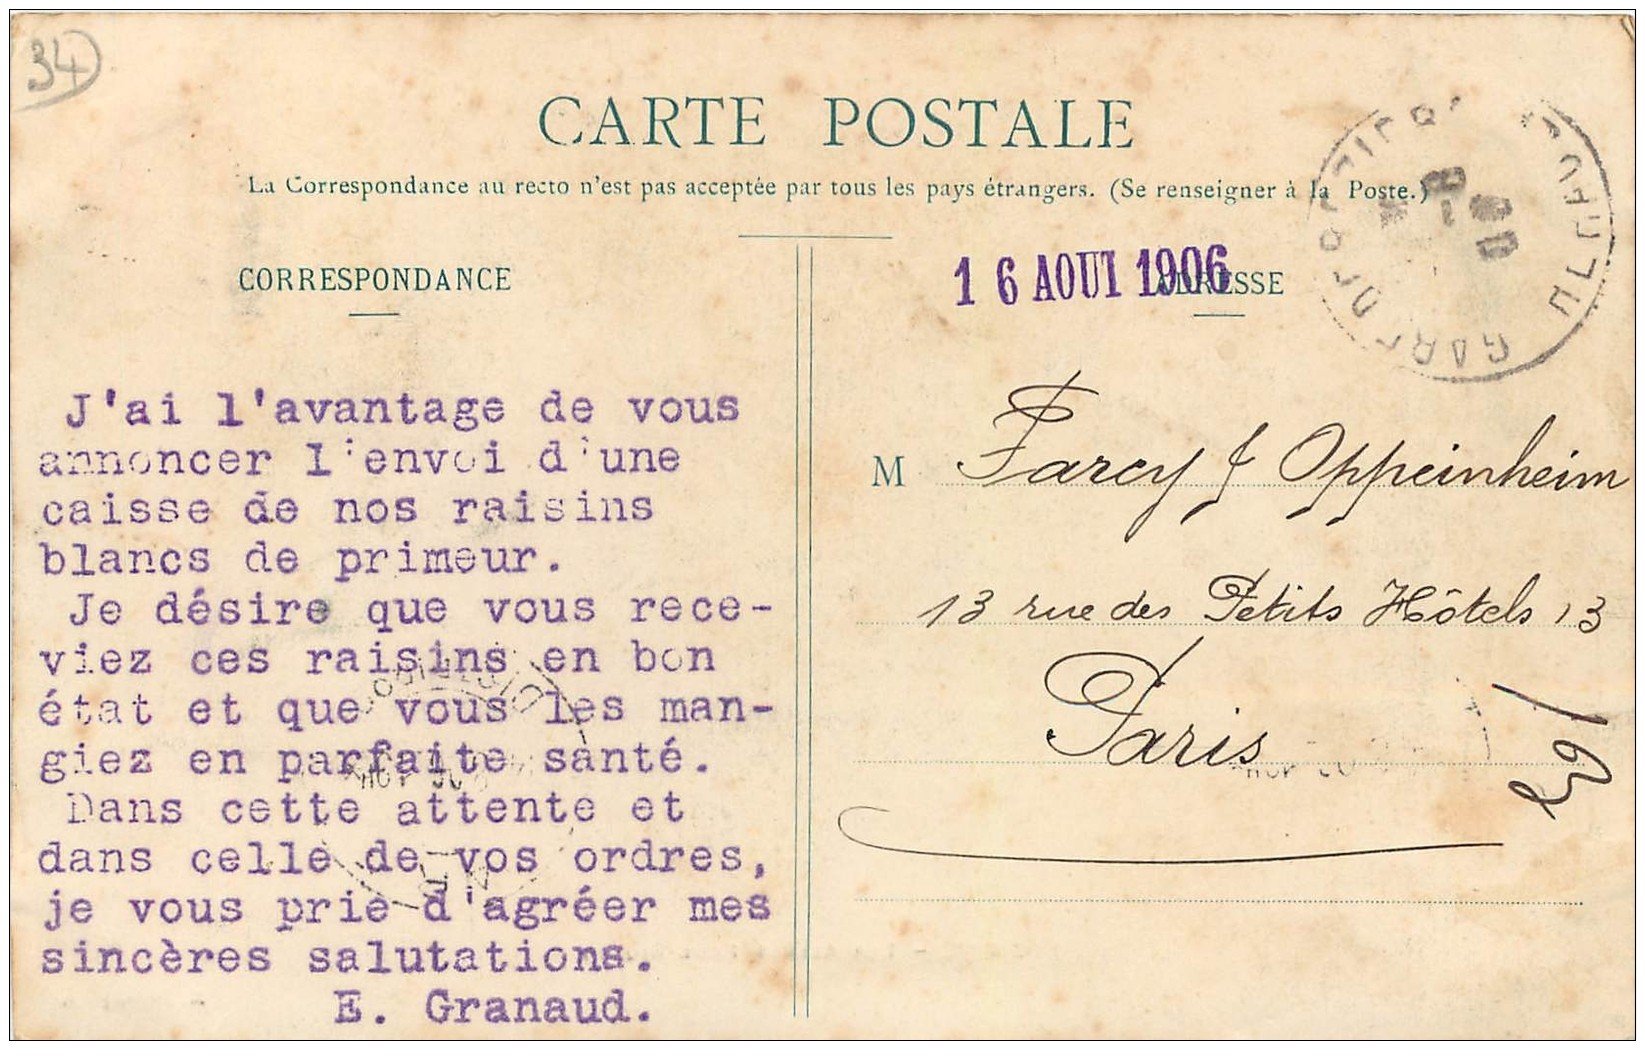 34
CARTE POSTALE
La Correspondance au recto n'est pas acceptée par tous les pays étrangers. (Se renseigner à la Poste.)
CORRESPONDANCE
16 AOUT 1906
ADRESSE
J'ai l'avantage de vous
annoncer l'envoi d'une
caisse de nos raisins
blancs de primeur.
Je désire que vous rece-
viez ces raisins en bon
état et que vous les man-
giez en parfaite santé.
Dans cette attente et
dans celle de vos ordres,
je vous prie d'agréer mes
sincères salutations.
E. Granaud.
M Farcy & Oppeinheim
13 rue des Petits Hôtels 13
Paris
GARE
HÉRAULT